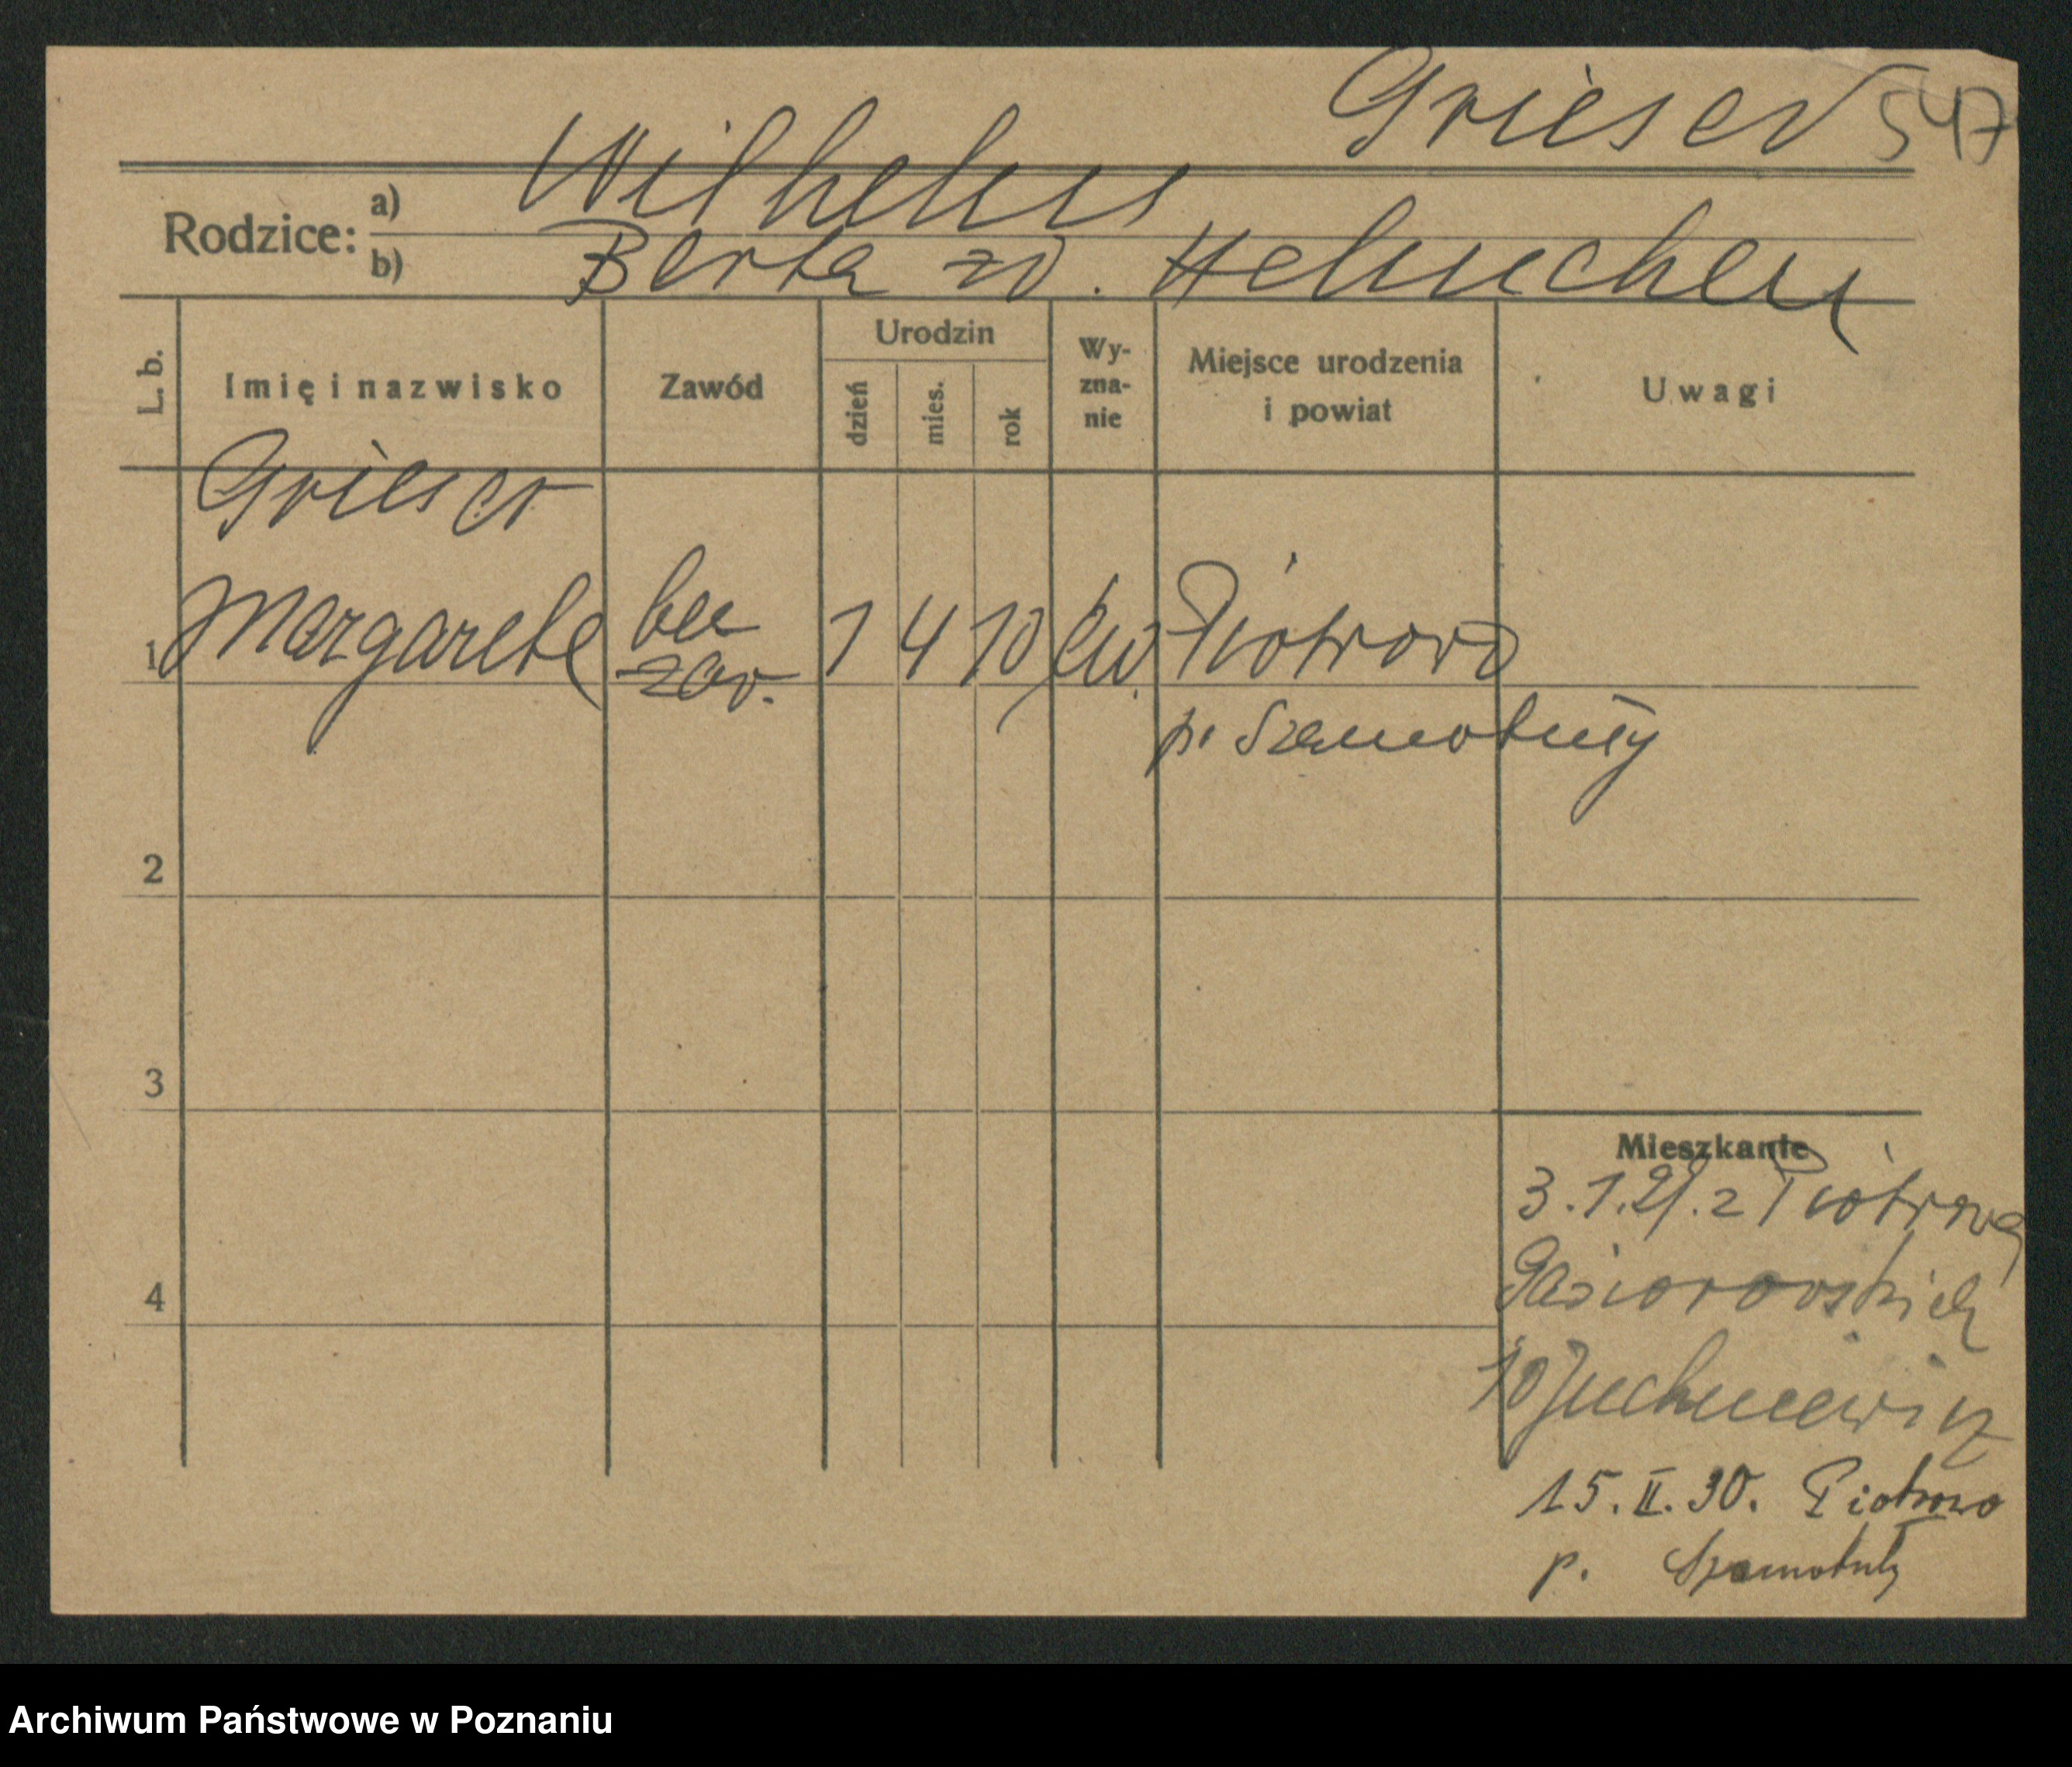 Grieser 547
Wilhelm
Rodzice: a)
b) Berta zd. Helmchen
L. b. Imię i nazwisko Zawód Urodzin dzień mies. rok Wy-zna-nie Miejsce urodzenia i powiat Uwagi
Grieser
1 Margarete bez zaw. 1 4 10 ew. Piotrowo
p. Szamotuły
2
3
4
Mieszkanie
3.1.29. z Piotrowa
Gąsiorowskich
10 Juchniewicz
15.II.30. Piotrowo
p. Szamotuły
Archiwum Państwowe w Poznaniu